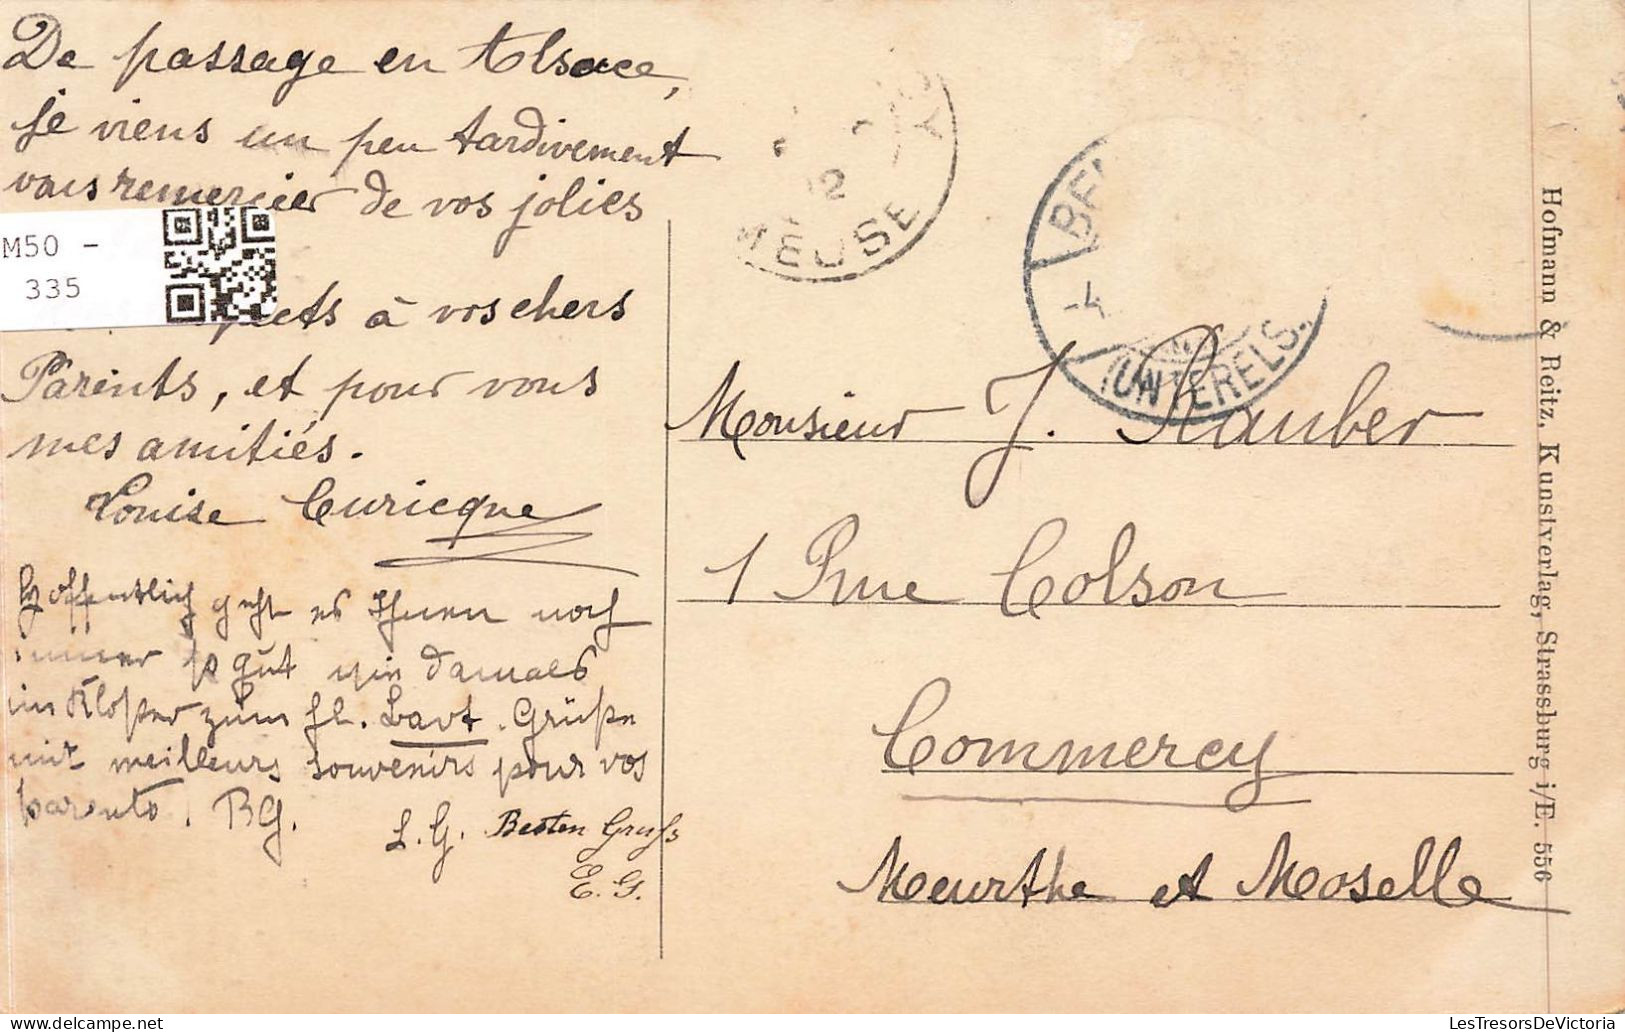 De passage en Alsace,
je viens un peu tardivement
vous remercier de vos jolies
M50 -
335
à vos chers
Parents, et pour vous
mes amitiés.
Louise Curicque
Hoffentlich geht es Ihnen noch
immer so gut wie damals
im Kloster zum fl. Grüße
mit meilleurs souvenirs pour vos
parents. B.G.
L. G. Besten Gruss
E. G.
MEUSE
BE
-4
(UNTERELS.)
Monsieur J. Rauber
1 Rue Colson
Commercy
Meurthe et Moselle
Hofmann & Reitz, Kunstverlag, Strassburg i/E. 556
LesTresorsDeVictoria